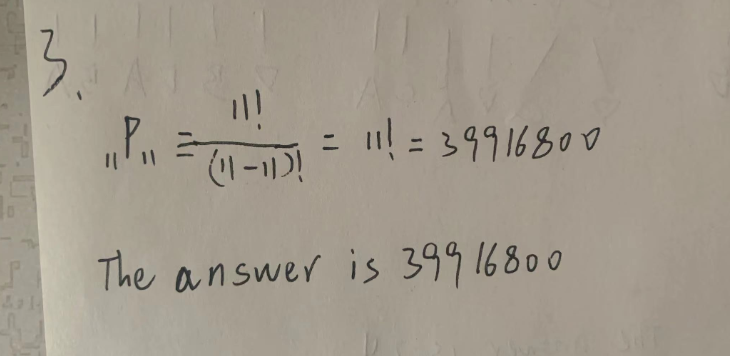 3.
₁₁P₁₁ = 11!/(11-11)! = 11! = 39916800
The answer is 39916800